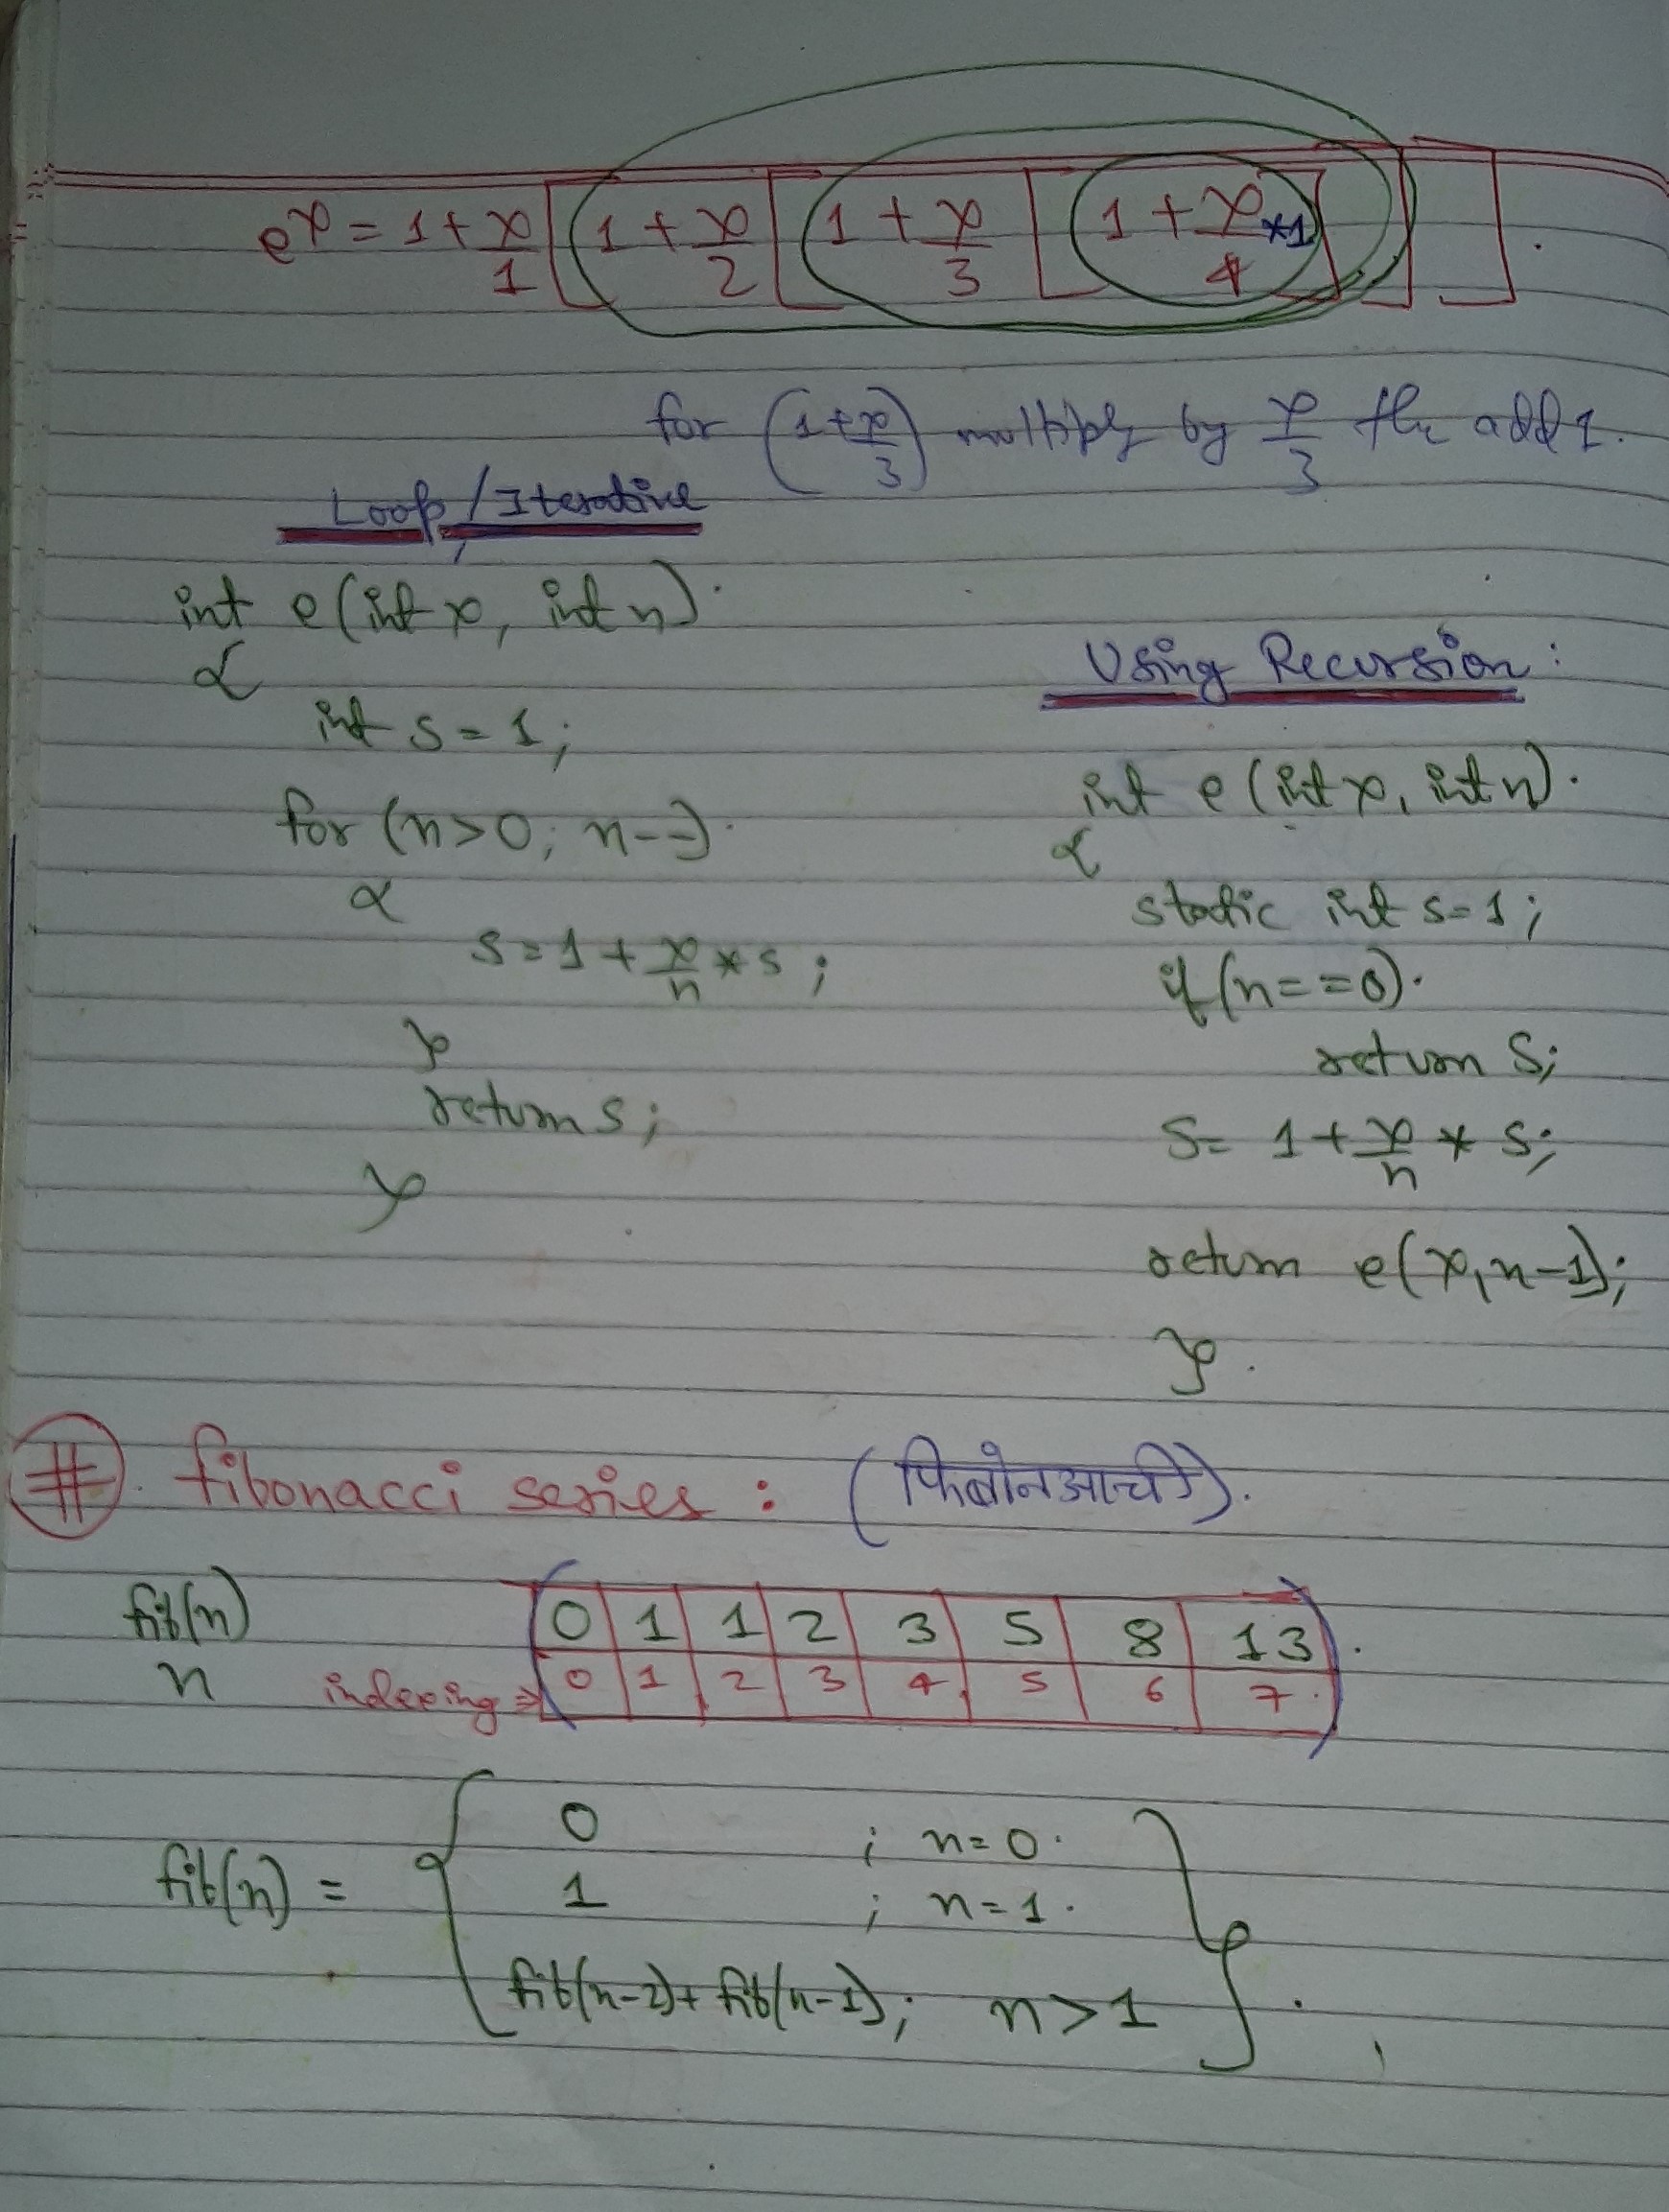 e^x = 1 + x/1 [1 + x/2 [1 + x/3 [1 + x/4 *1] ] ] .
for (1+x/3) multiply by x/3 the add 1.
Loop/Iterative
int e(int x, int n)
{
int s = 1;
for (n>0; n--)
{
s = 1 + x/n * s ;
}
return s ;
}
Using Recursion :
int e (int x, int n)
{
static int s=1;
if (n==0)
return S;
S= 1 + x/n * S;
return e(x, n-1);
}
# fibonacci series : (फिबोनआची).
fib(n) 0 1 1 2 3 5 8 13
n indexing ⇒ 0 1 2 3 4 5 6 7
fib(n) = { 0 ; n=0
1 ; n=1
fib(n-2)+ fib(n-1); n>1 } .